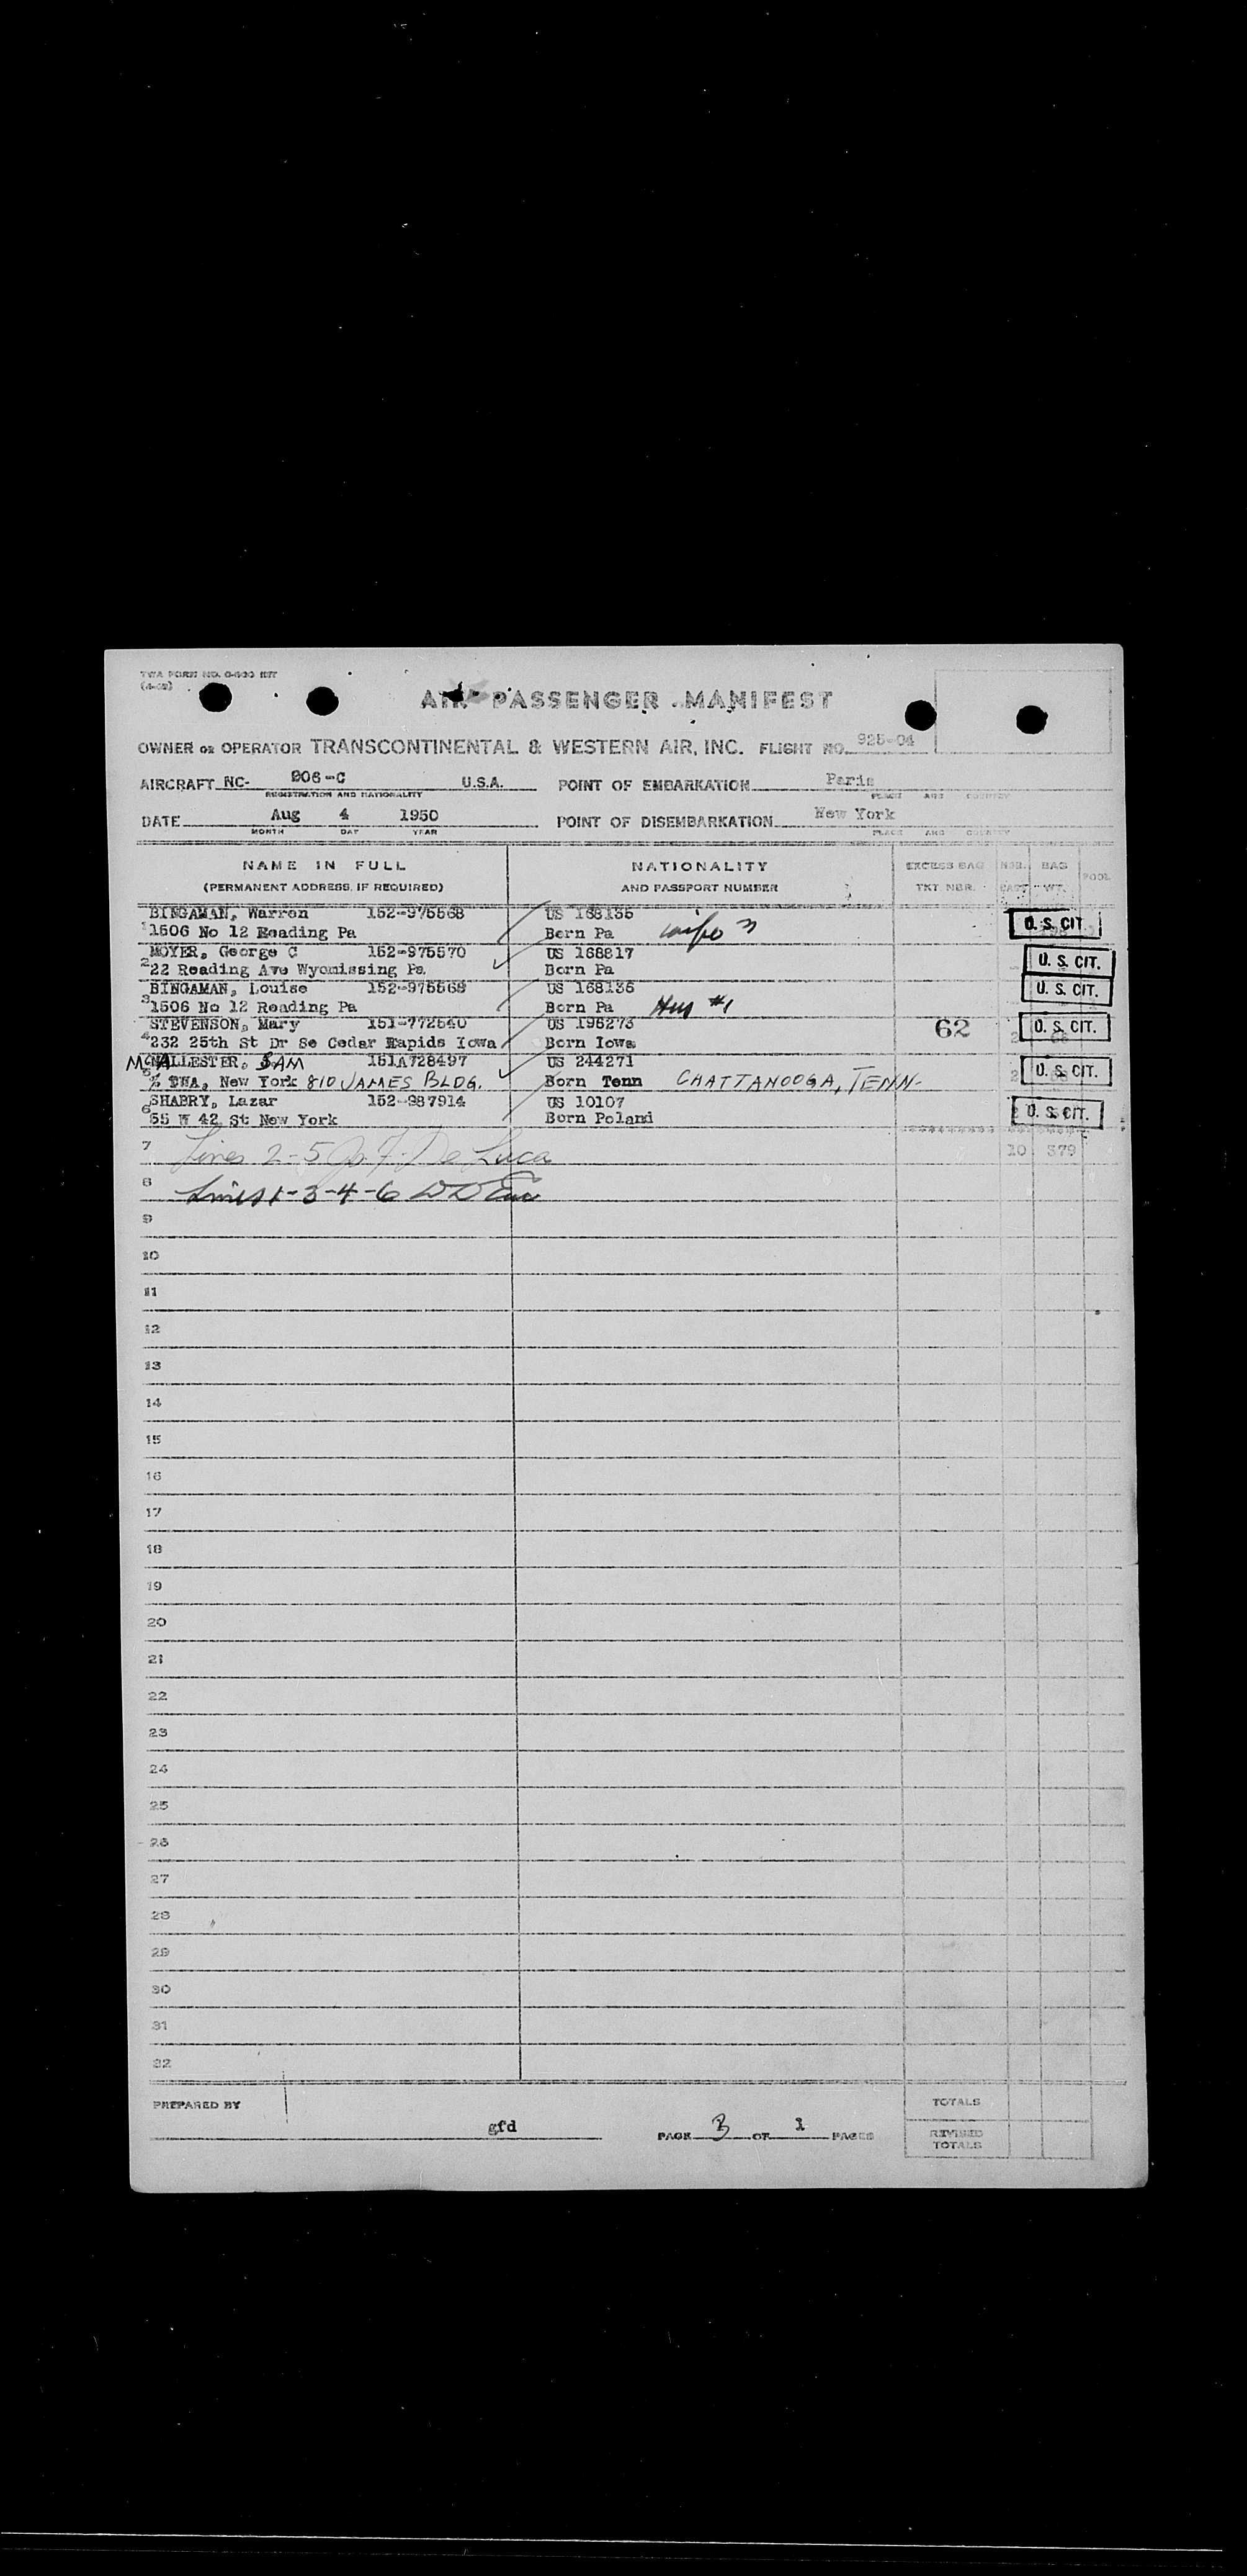 AIR PASSENGER MANIFEST
OWNER OR OPERATOR TRANSCONTINENTAL & WESTERN AIR, INC. FLIGHT NO. 925-04
AIRCRAFT NC- 906-C U.S.A. POINT OF EMBARKATION Paris
REGISTRATION AND NATIONALITY PLACE AND COUNTRY
DATE Aug 4 1950 POINT OF DISEMBARKATION New York
MONTH DAY YEAR PLACE AND COUNTRY
NAME IN FULL NATIONALITY EXCESS BAG BAG
(PERMANENT ADDRESS, IF REQUIRED) AND PASSPORT NUMBER TKT NBR. WT. POOL
BINGAMAN, Warren 152-975568 US 168135
1 1506 No 12 Reading Pa Born Pa wife 3 U. S. CIT.
MOYER, George C 152-975570 US 168817
2 22 Reading Ave Wyomissing Pa Born Pa U. S. CIT.
BINGAMAN, Louise 152-975569 US 168136 U. S. CIT.
3 1506 No 12 Reading Pa Born Pa Hus #1
STEVENSON, Mary 151-772540 US 196273 62 U. S. CIT.
4 232 25th St Dr Se Cedar Rapids Iowa Born Iowa 2
McALLESTER, SAM 151A728497 US 244271
5 % TWA, New York 810 JAMES BLDG. Born Tenn CHATTANOOGA, TENN- 2 U. S. CIT.
SHABRY, Lazar 152-987914 US 10107
6 55 W 42 St New York Born Poland U. S. CIT.
7 Lines 2-5 De Luca 10 379
8 Lines 1-3-4-6
9
10
11
12
13
14
15
16
17
18
19
20
21
22
23
24
25
26
27
28
29
30
31
32
PREPARED BY TOTALS
gfd PAGE 3 OF 1 PAGES REVISED
TOTALS